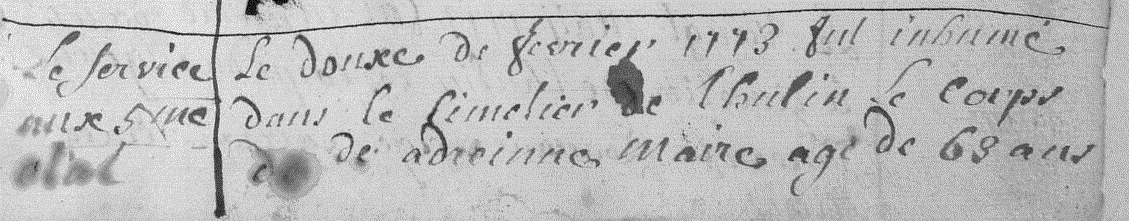 Le service
aux 5me
etat
Le douxe de fevrier 1773 fut inhumé
dans le simetier de Thulin le corps
de de adreinne maire agé de 63 ans